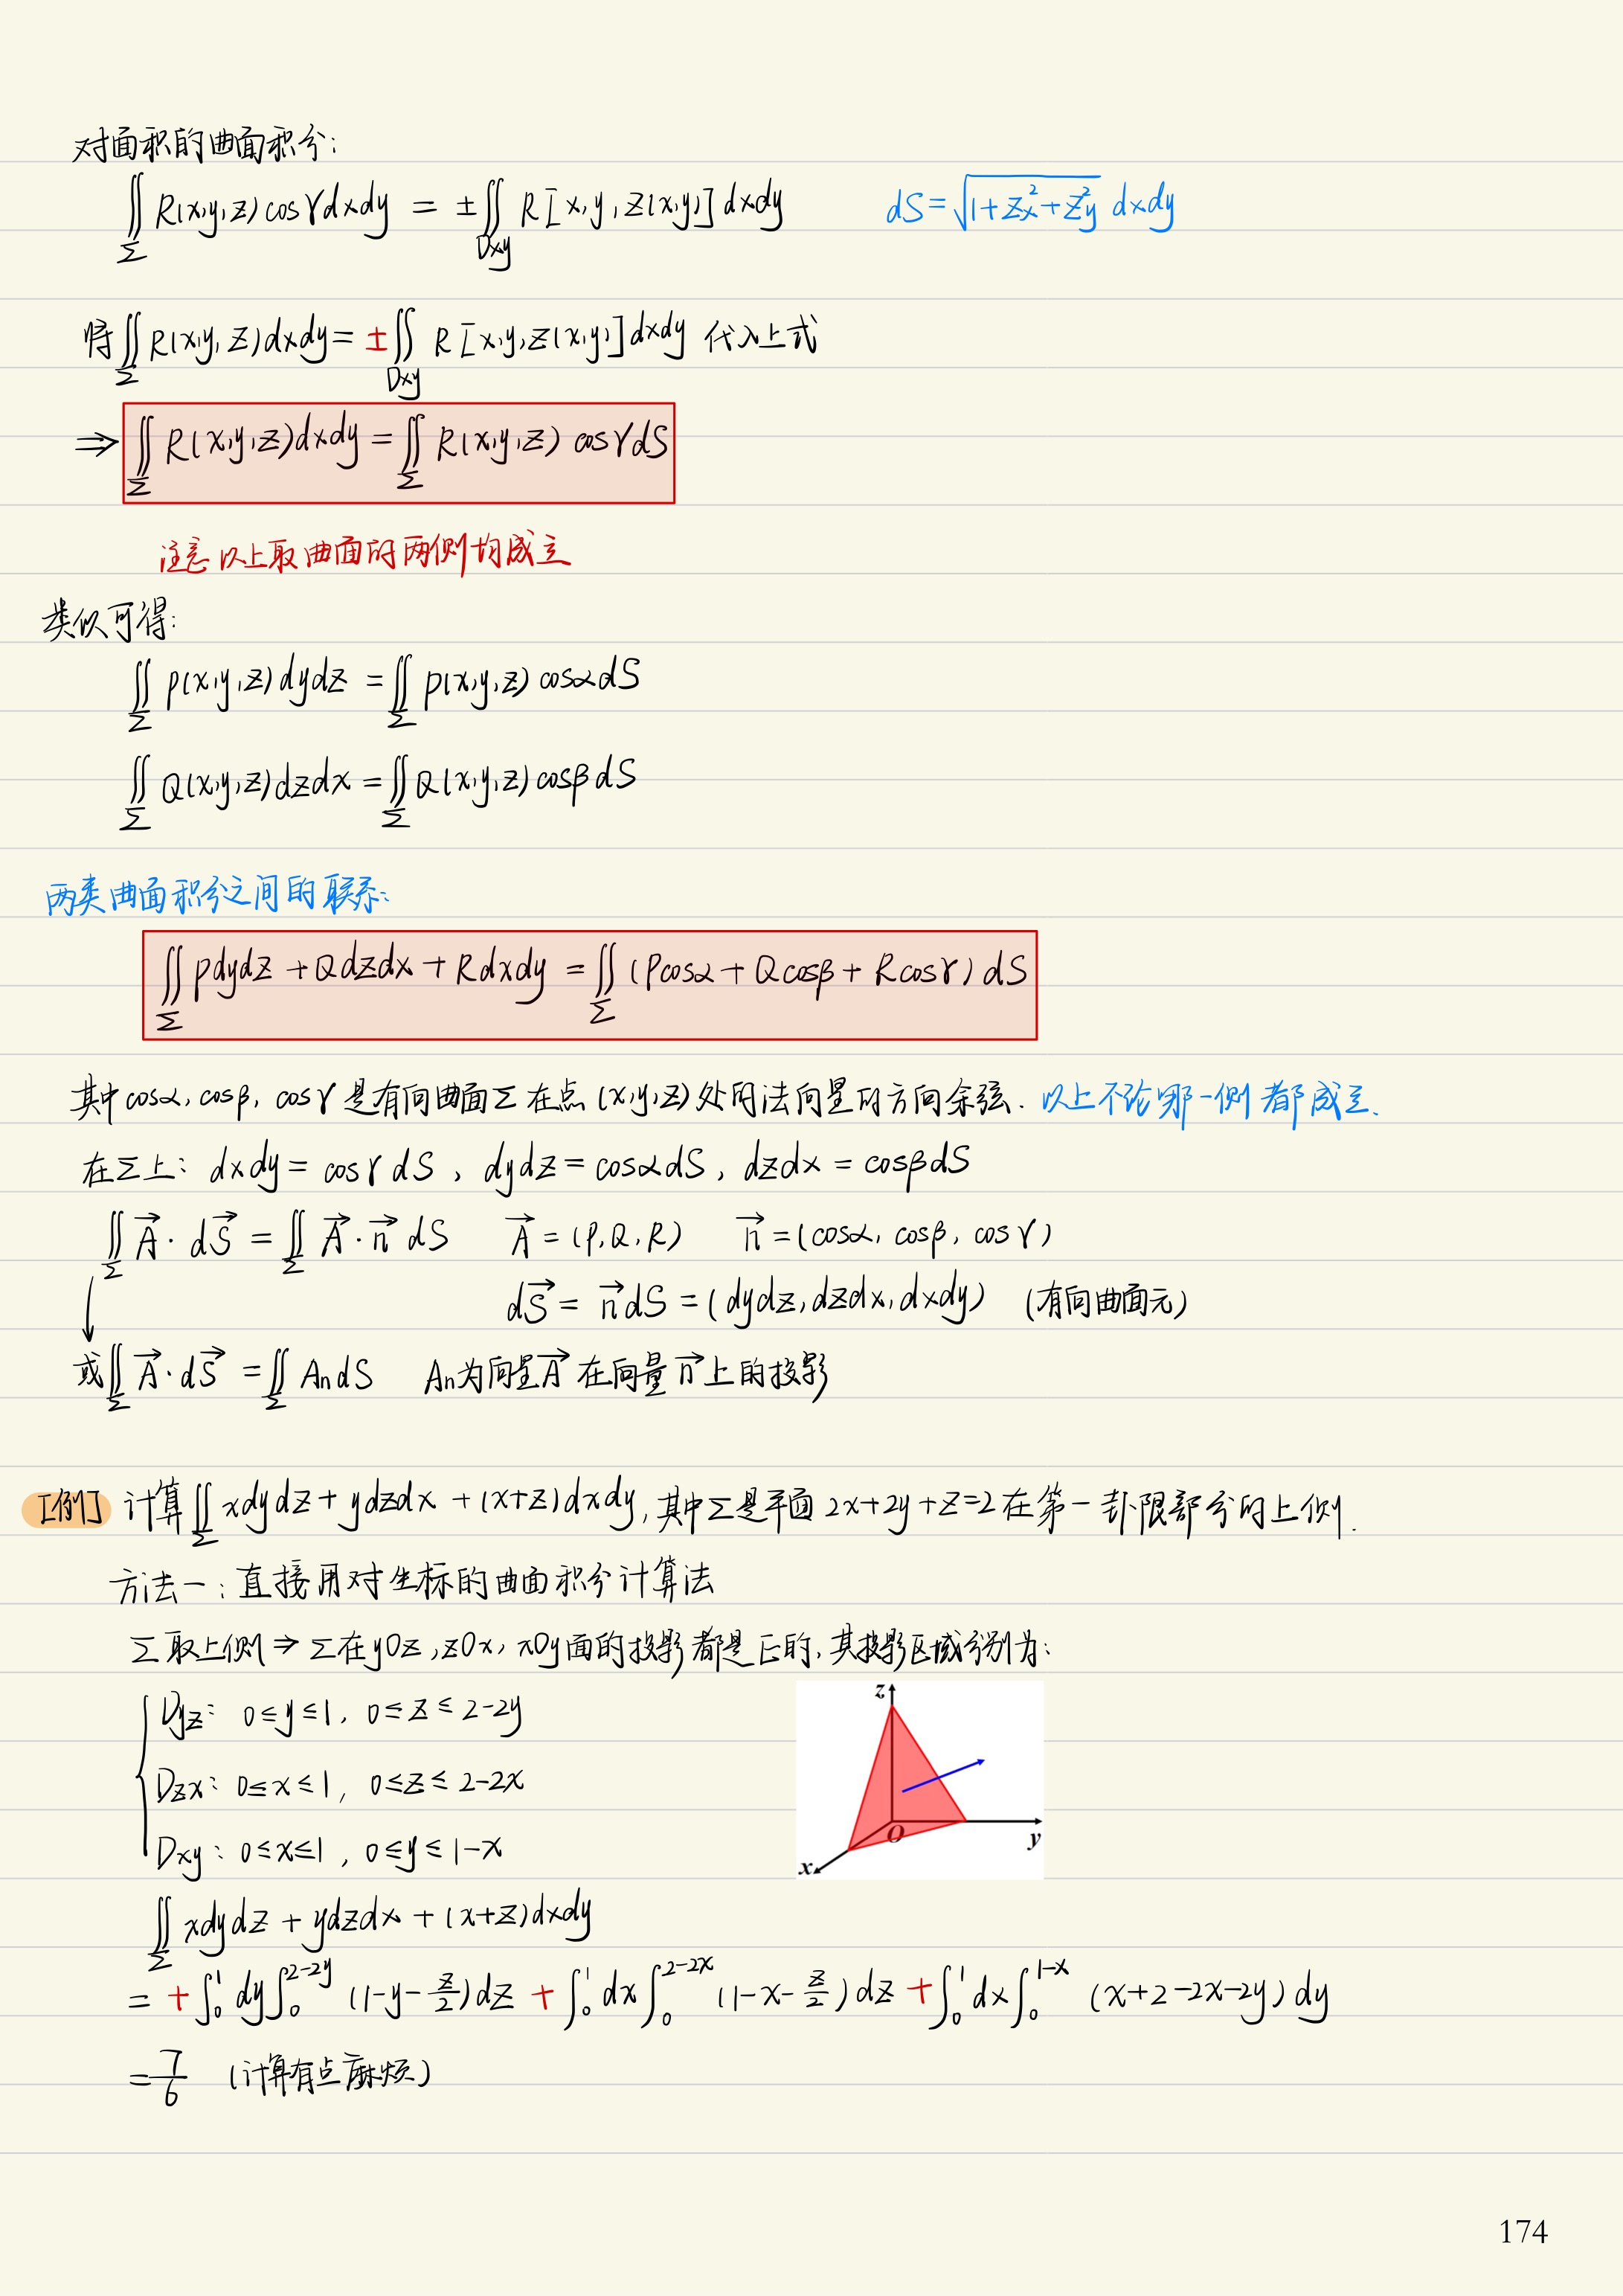 对面积的曲面积分:
∬_Σ R(x,y,z) cosγ dxdy = ±∬_Dxy R[x,y,z(x,y)] dxdy dS=√(1+Zx²+Zy²) dxdy
将∬_Σ R(x,y,z)dxdy= ±∬_Dxy R[x,y,z(x,y)]dxdy 代入上式
⇒ ∬_Σ R(x,y,z)dxdy = ∬_Σ R(x,y,z) cosγ dS
注意以上取曲面的两侧均成立
类似可得:
∬_Σ P(x,y,z) dydz = ∬_Σ P(x,y,z) cosα dS
∬_Σ Q(x,y,z)dzdx = ∬_Σ Q(x,y,z) cosβ dS
两类曲面积分之间的联系:
∬_Σ Pdydz + Qdzdx + Rdxdy = ∬_Σ (Pcosα + Qcosβ + Rcosγ) dS
其中cosα, cosβ, cosγ是有向曲面Σ在点(x,y,z)处的法向量的方向余弦. 以上不论哪一侧都成立.
在Σ上: dxdy = cosγ dS, dydz = cosα dS, dzdx = cosβ dS
∬_Σ A⃗ · dS⃗ = ∬_Σ A⃗ · n⃗ dS A⃗ = (P,Q,R) n⃗ = (cosα, cosβ, cosγ)
dS⃗ = n⃗ dS = (dydz, dzdx, dxdy) (有向曲面元)
↓
或∬_Σ A⃗ · dS⃗ = ∬_Σ An dS An为向量A⃗ 在向量n⃗上的投影
[例] 计算∬_Σ xdydz + ydzdx + (x+z)dxdy, 其中Σ是平面 2x+2y+z=2 在第一卦限部分的上侧.
方法一: 直接用对坐标的曲面积分计算法
Σ取上侧⇒Σ在yOz, zOx, xOy面的投影都是正的, 其投影区域分别为:
Dyz: 0≤y≤1, 0≤z≤2-2y
Dzx: 0≤x≤1, 0≤z≤2-2x
Dxy: 0≤x≤1, 0≤y≤1-x
z
O
y
x
∬_Σ xdydz + ydzdx + (x+z)dxdy
= +∫₀¹ dy∫₀^(2-2y) (1-y-z/2)dz + ∫₀¹ dx∫₀^(2-2x) (1-x-z/2)dz + ∫₀¹ dx∫₀^(1-x) (x+2-2x-2y) dy
= 7/6 (计算有点麻烦)
174